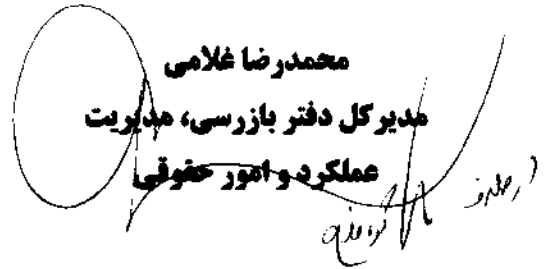 محمدرضا غلامی
مدیرکل دفتر بازرسی، مدیریت
عملکرد و امور حقوقی
از طرف